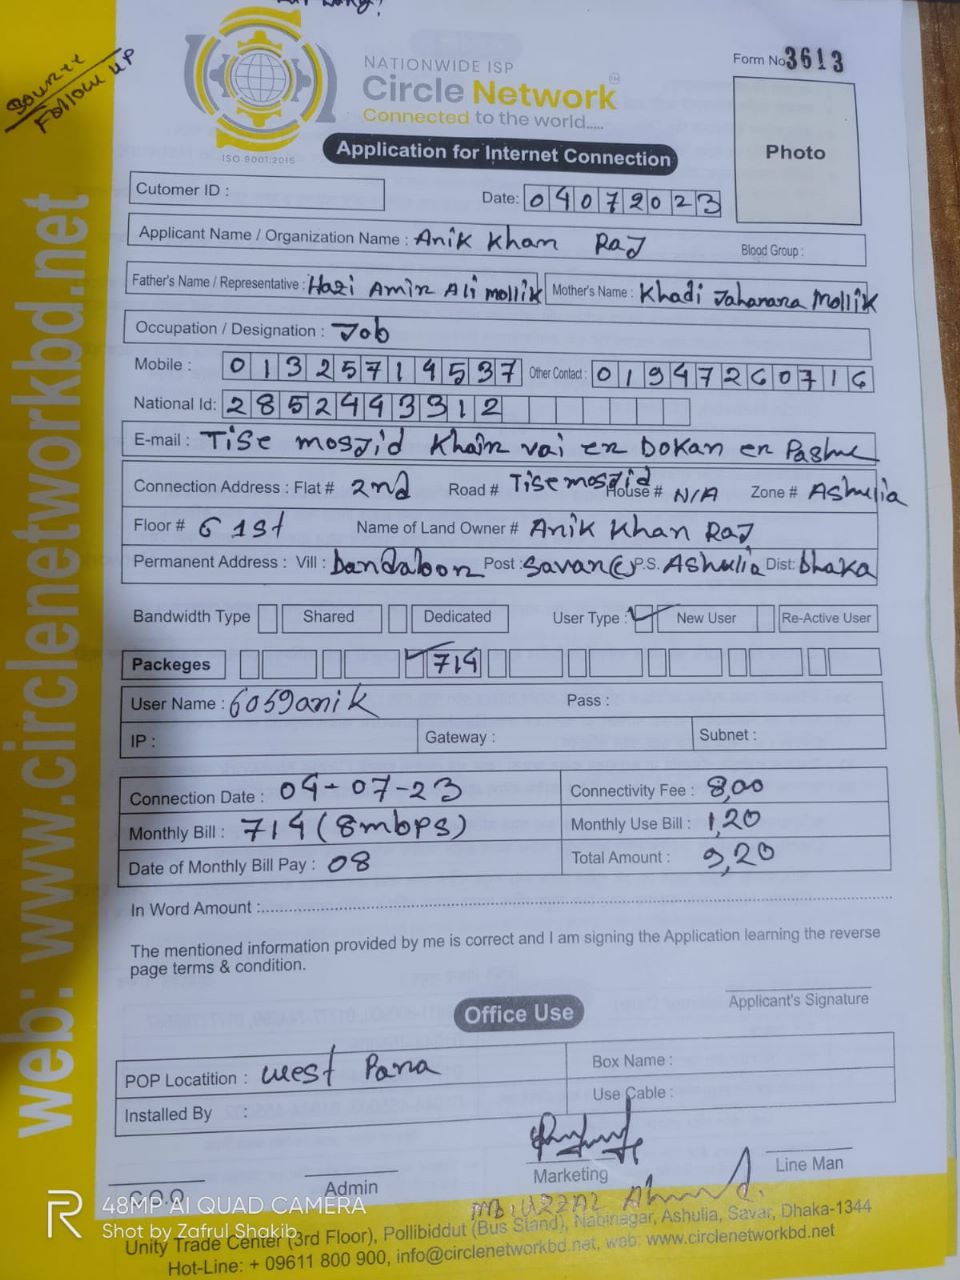 Source
Follow UP
NATIONWIDE ISP
Circle Network
TM
Connected to the world.....
ISO 9001:2015
Form No 3613
Photo
Application for Internet Connection
Cutomer ID :
Date: 04072023
Applicant Name / Organization Name : Anik Khan Raj Blood Group :
Father's Name / Representative : Hazi Amir Ali Mollik Mother's Name : Khadi Jaharara Mollik
Occupation / Designation : Job
Mobile : 01325714537 Other Contact : 01947260716
National Id: 2852443312
E-mail : Tise mosjid Khair vai er Dokan er Pashe
Connection Address : Flat # 2nd Road # Tisemosjid House # N/A Zone # Ashulia
Floor # 6 1st Name of Land Owner # Anik Khan Raj
Permanent Address : Vill : Post : Savar P.S. Ashulia Dist: Dhaka
Bandwidth Type Shared Dedicated User Type : New User Re-Active User
Packeges 714
User Name : 6059anik Pass :
IP : Gateway : Subnet :
Connection Date : 04-07-23 Connectivity Fee : 8,00
Monthly Bill : 714 (8mbps) Monthly Use Bill : 1,20
Date of Monthly Bill Pay : 08 Total Amount : 9,20
In Word Amount :
The mentioned information provided by me is correct and I am signing the Application learning the reverse
page terms & condition.
Applicant's Signature
Office Use
POP Locatition : West Para Box Name :
Installed By : Use Cable :
Admin Marketing Line Man
MD: UZZAL Ahmed.
Unity Trade Center (3rd Floor), Pollibiddut (Bus Stand), Nabinagar, Ashulia, Savar, Dhaka-1344
Hot-Line: + 09611 800 900, info@circlenetworkbd.net, web: www.circlenetworkbd.net
web: www.circlenetworkbd.net
48MP AI QUAD CAMERA
Shot by Zafrul Shakib